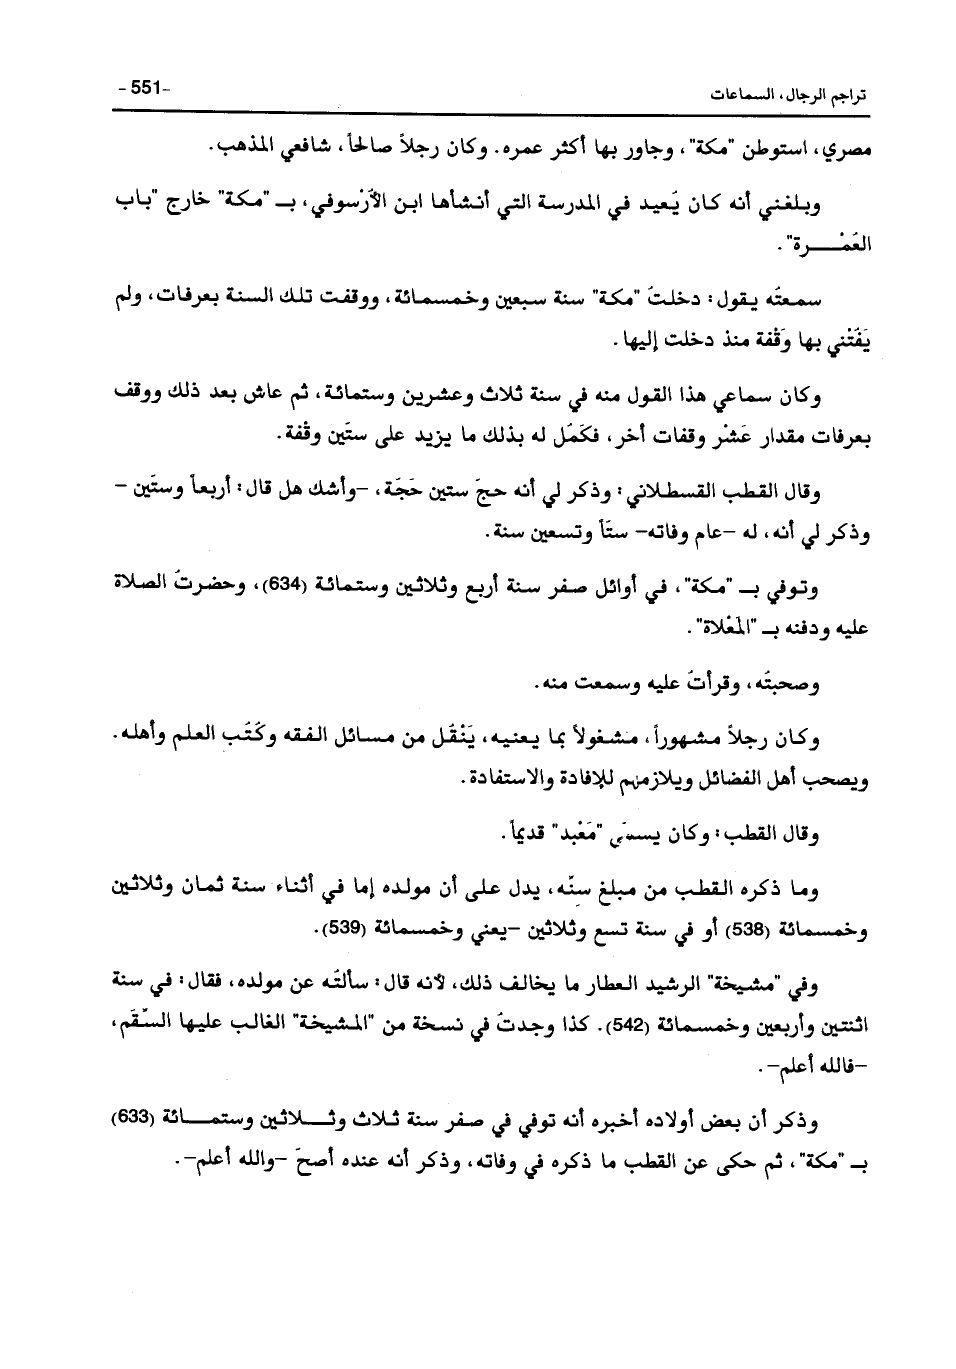 تراجم الرجال، السماعات -551-
مصري، استوطن "مكة"، وجاور بها أكثر عمره. وكان رجلاً صالحاً، شافعي المذهب.
وبلغني أنه كان يُعيد في المدرسة التي أنشأها ابن الأَرْسوفي، بـ "مكة" خارج "باب
العُمْـــرة".
سمعتُه يقول: دخلتُ "مكة" سنة سبعين وخمسمائة، ووقفت تلك السنة بعرفات، ولم
يَفُتْني بها وَقْفة منذ دخلت إليها.
وكان سماعي هذا القول منه في سنة ثلاث وعشرين وستمائة، ثم عاش بعد ذلك ووقف
بعرفات مقدار عَشْر وقفات أخر، فكَمُل له بذلك ما يزيد على ستّين وقْفة.
وقال القطب القسطلاني: وذكر لي أنه حجّ ستين حَجّة، -وأشك هل قال: أربعاً وستّين -
وذكر لي أنه، له -عام وفاته- ستّاً وتسعين سنة.
وتوفي بـ "مكة"، في أوائل صفر سنة أربع وثلاثين وستمائة (634)، وحضرتُ الصلاة
عليه ودفنه بـ "المَعْلاة".
وصحبتُه، وقرأتُ عليه وسمعت منه.
وكان رجلاً مشهوراً، مشغولاً بما يعنيه، يَنْقُل من مسائل الفقه وكُتُب العلم وأهله.
ويصحب أهل الفضائل ويلازمهم للإفادة والاستفادة.
وقال القطب: وكان يسمّى "مَعْبد" قديماً.
وما ذكره القطب من مبلغ سنّه، يدل على أن مولده إما في أثناء سنة ثمان وثلاثين
وخمسمائة (538) أو في سنة تسع وثلاثين -يعني وخمسمائة (539).
وفي "مشيخة" الرشيد العطار ما يخالف ذلك، لأنه قال: سألتُه عن مولده، فقال: في سنة
اثنتين وأربعين وخمسمائة (542). كذا وجدتُ في نسخة من "المشيخة" الغالب عليها السُّقم،
-فالله أعلم-.
وذكر أن بعض أولاده أخبره أنه توفي في صفر سنة ثلاث وثلاثين وستمائة (633)
بـ "مكة"، ثم حكى عن القطب ما ذكره في وفاته، وذكر أنه عنده أصحّ -والله أعلم-.